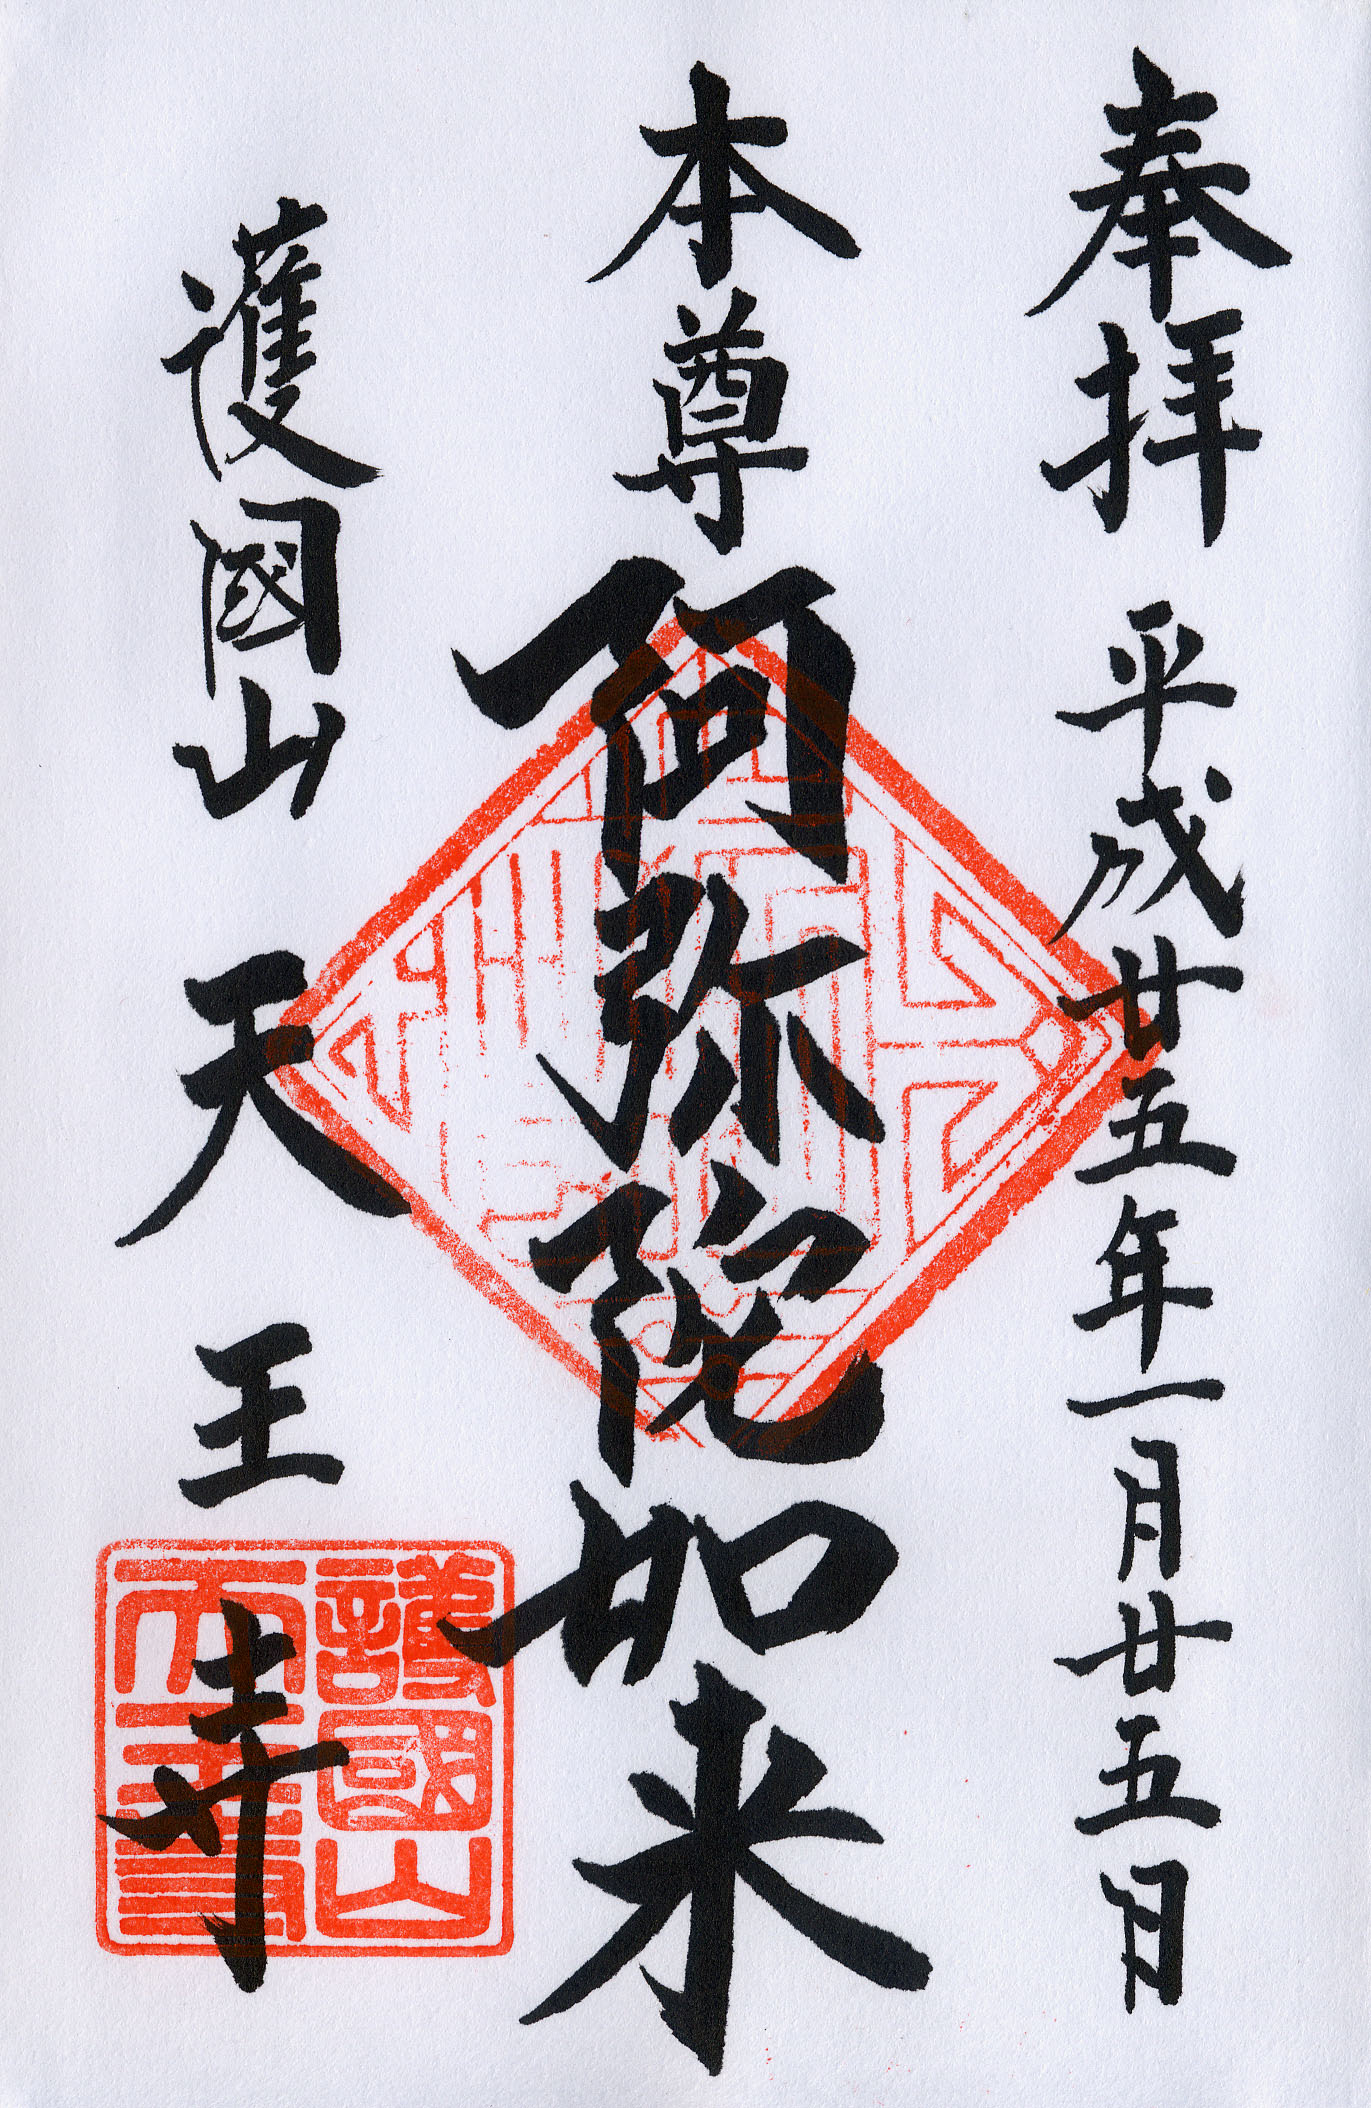 奉拝 平成廿五年一月廿五日
本尊 阿弥陀如来
護國山 天王寺
護國山
天王寺